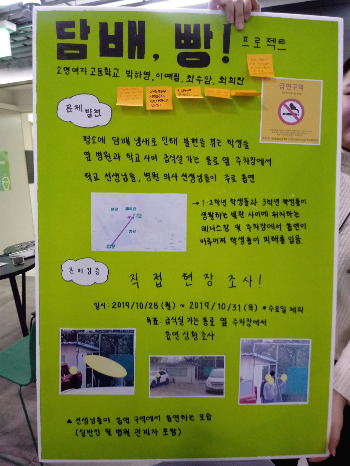 담배, 빵! 프로젝트
소명여자 고등학교
문제 발견
평소에 담배 냄새로 인해 불편을 겪는 학생들
옆 병원과 학교 사이 급식실 가는 통로 옆 주차장에서
학교 선생님들, 병원 의사 선생님들이 주로 흡연
금연구역
→ 1·2학년 학생들과 3학년 학생들이
생활하는 별관 사이에 위치하는
테니스장 및 주차장에서 흡연이
이루어져 학생들이 피해를 입음
문제 검증
직접 현장 조사!
일시: 2019/10/28 (월) ~ 2019/10/31 (목) * 수요일 제외
목표: 급식실 가는 통로 옆 주차장에서
흡연 상황 조사
▲ 선생님들이 흡연 구역에서 흡연하는 모습
(일반인 및 병원 관계자 포함)